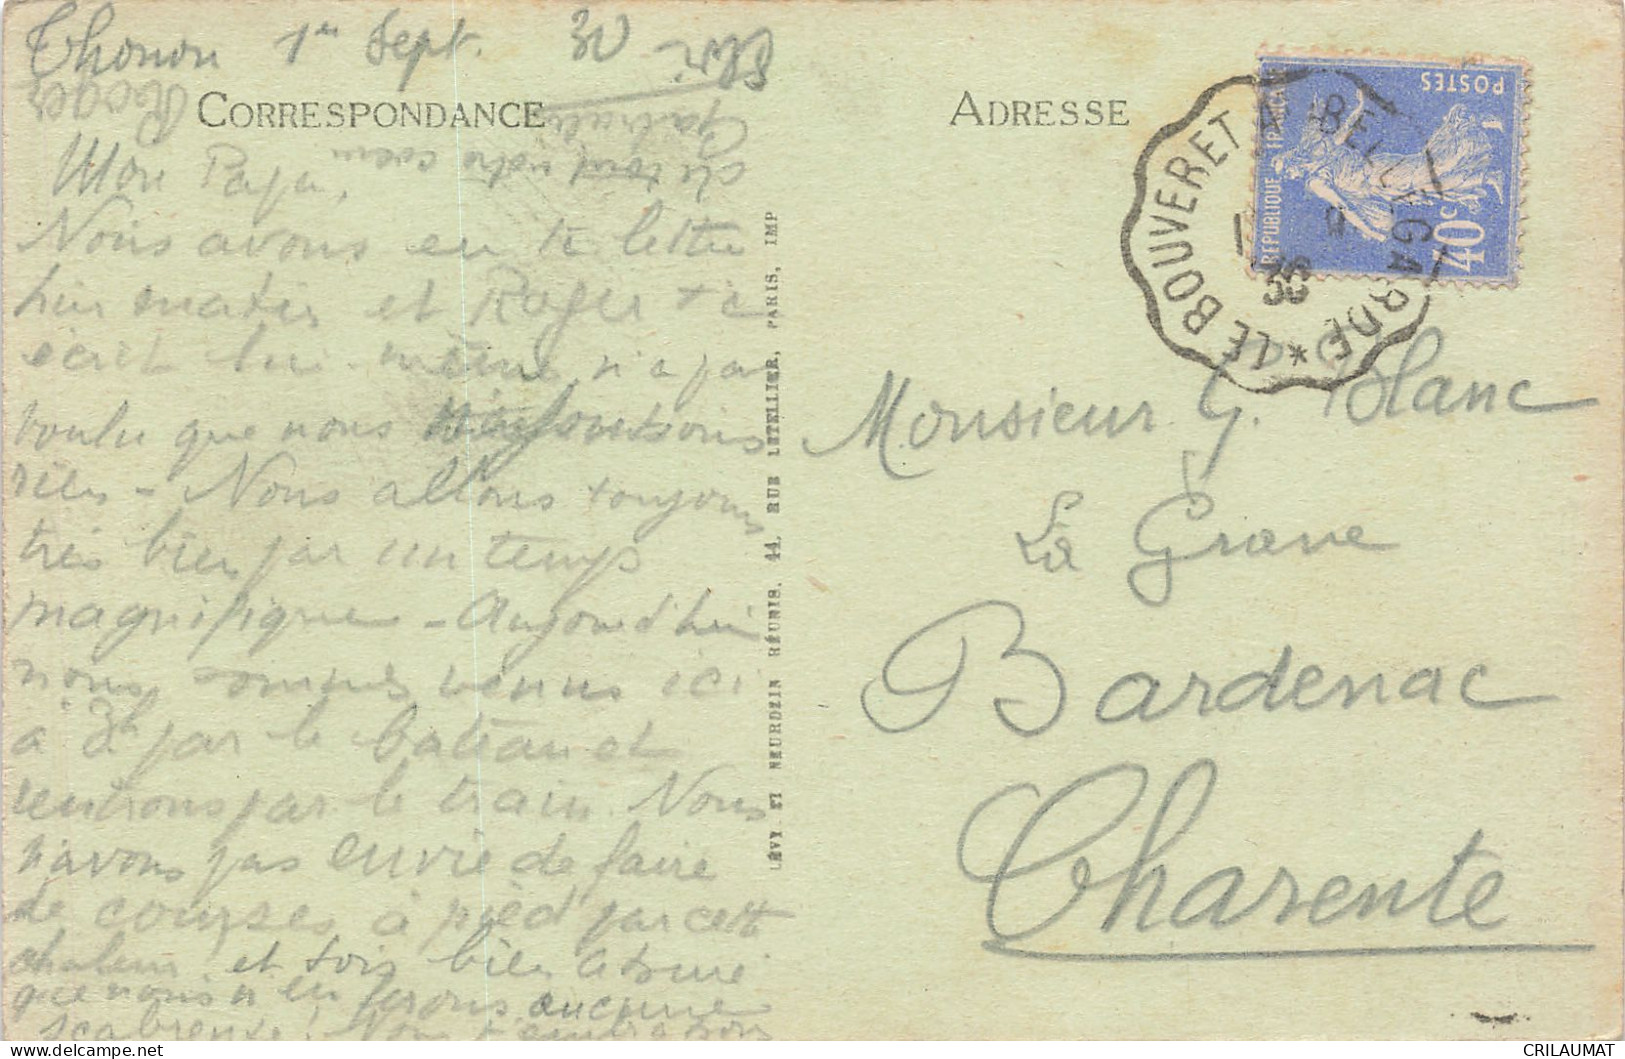 Thonon 1er Sept. 30
CORRESPONDANCE
Mon Papa,
Nous avons eu ta lettre
hier matin et Roger t'a
écrit lui-même, n'a pas
voulu que nous
rien - Nous allons toujours
très bien par un temps
magnifique - Aujourd'hui
nous sommes venus ici
à 3h par le bateau et
rentrons par le train. Nous
n'avons pas envie de faire
de courses à pied par cette
chaleur! et sois bien assuré
que nous n'en ferons aucune
scabreuse! Nous t'embrassons
de tout notre coeur
Roger
LÉVY ET NEURDEIN RÉUNIS. 44, RUE LETELLIER, PARIS, IMP
ADRESSE
LE BOUVERET A BELLEGARDE *
1 9
36
REPUBLIQUE FRANÇAISE
POSTES
40c
Monsieur G. Blanc
La Grave
Bardenac
Charente
CRILAUMAT